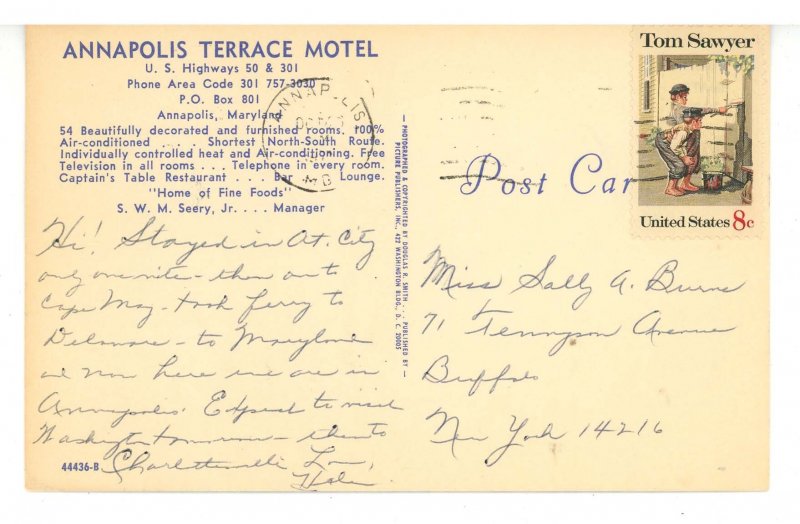 ANNAPOLIS TERRACE MOTEL
U. S. Highways 50 & 301
Phone Area Code 301 757-3030
P.O. Box 801
Annapolis, Maryland
54 Beautifully decorated and furnished rooms. 100%
Air-conditioned . . . . Shortest North-South Route.
Individually controlled heat and Air-conditioning. Free
Television in all rooms . . . Telephone in every room.
Captain's Table Restaurant . . . Bar Lounge.
"Home of Fine Foods"
S. W. M. Seery, Jr. . . . Manager
Hi! Stayed in At. City
only one nite - then on to
Cape May - took ferry to
Delaware - to Maryland
and now here we are in
Annapolis. Expect to visit
Washington tomorrow - then to
Charlottesville Love,
Helen
44436-B
— PHOTOGRAPHED & COPYRIGHTED BY DOUGLAS R. SMITH . .
PICTURE PUBLISHERS, INC., 422 WASHINGTON BLDG., D. C. 20005
PUBLISHED BY —
ANNAPOLIS
MD
Post Car
Tom Sawyer
United States 8c
Miss Sally A. Burns
71 Tennyson Avenue
Buffalo
New York 14216